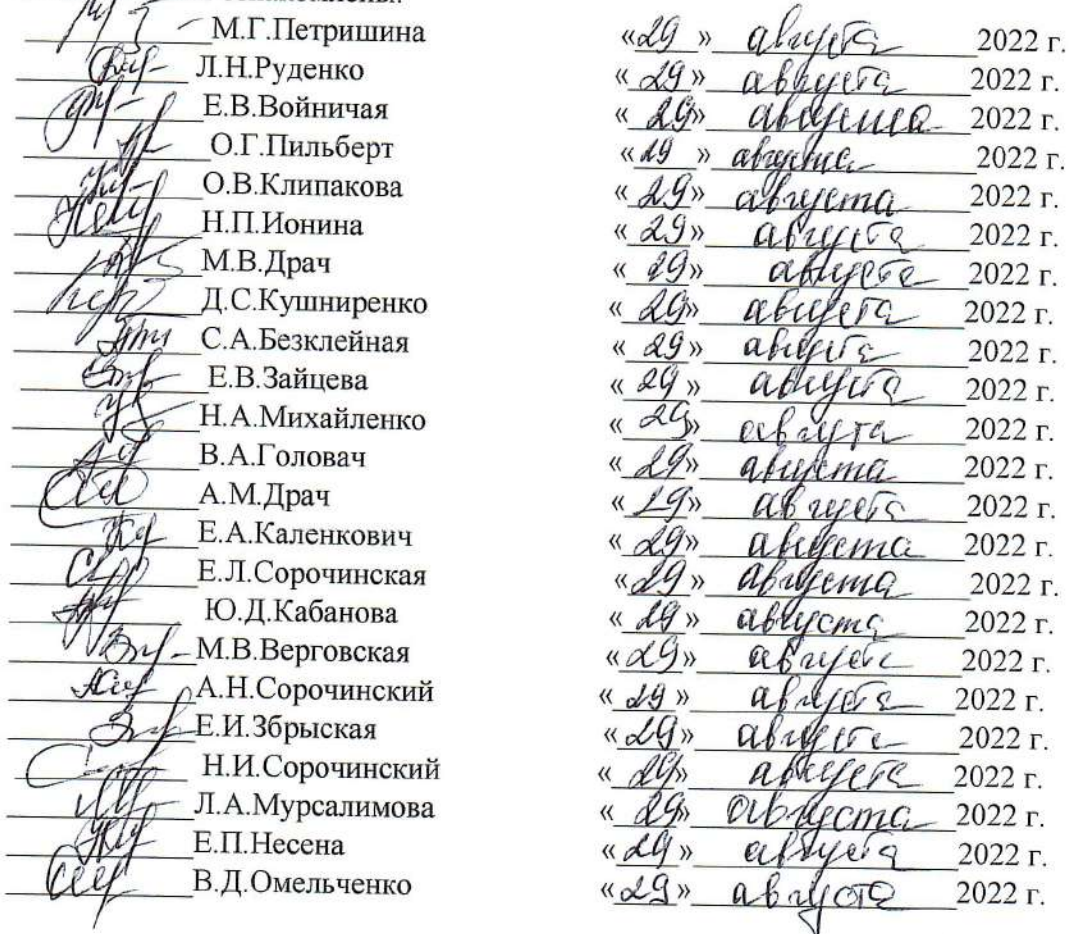 М.Г.Петришина «29» августа 2022 г.
Л.Н.Руденко «29» августа 2022 г.
Е.В.Войничая «29» августа 2022 г.
О.Г.Пильберт «29» августа 2022 г.
О.В.Клипакова «29» августа 2022 г.
Н.П.Ионина «29» августа 2022 г.
М.В.Драч «29» августа 2022 г.
Д.С.Кушниренко «29» августа 2022 г.
С.А.Безклейная «29» августа 2022 г.
Е.В.Зайцева «29» августа 2022 г.
Н.А.Михайленко «29» августа 2022 г.
В.А.Головач «29» августа 2022 г.
А.М.Драч «29» августа 2022 г.
Е.А.Каленкович «29» августа 2022 г.
Е.Л.Сорочинская «29» августа 2022 г.
Ю.Д.Кабанова «29» августа 2022 г.
М.В.Верговская «29» августа 2022 г.
А.Н.Сорочинский «29» августа 2022 г.
Е.И.Збрыская «29» августа 2022 г.
Н.И.Сорочинский «29» августа 2022 г.
Л.А.Мурсалимова «29» августа 2022 г.
Е.П.Несена «29» августа 2022 г.
В.Д.Омельченко «29» августа 2022 г.